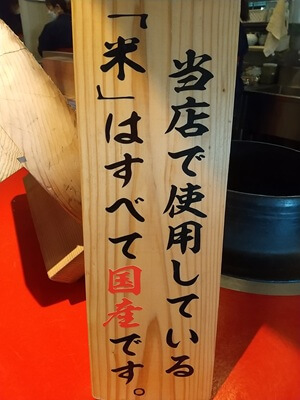 当店で使用している
「米」はすべて国産です。